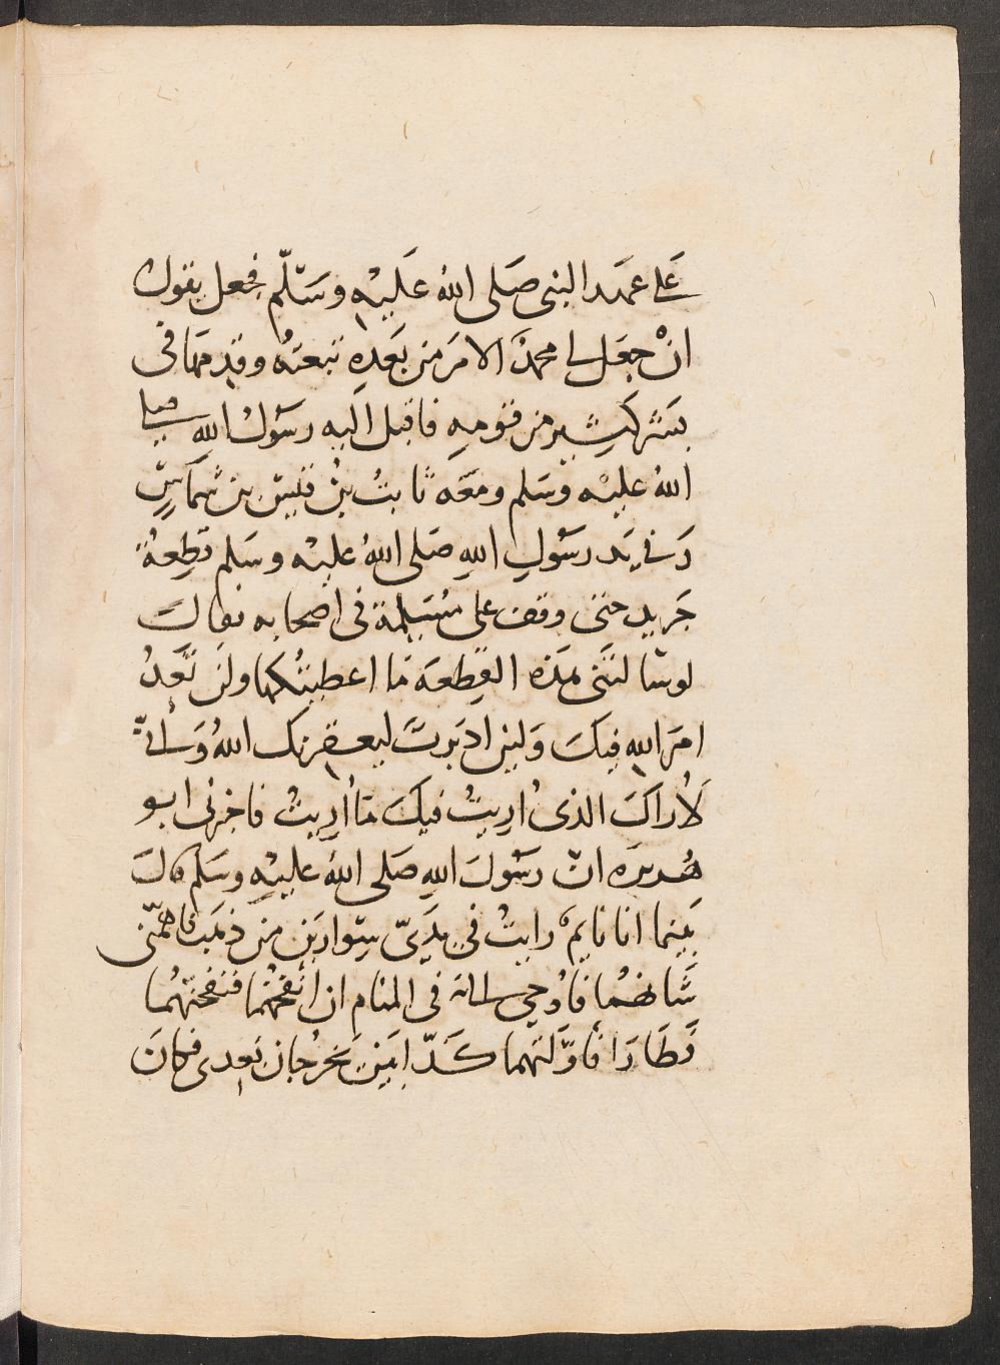 عَلى عهد النبى صَلى اللهُ عَلَيْهِ وسَلّم فجعل يقول
انْ جعَل لى محمدٌ الامرَ من بَعدِهِ تبعتهُ وقدِمَهَا فى
بشر كَثِيرٍ من قومِهِ فاقبل اليه رسَولُ اللهِ صلى
اللهُ عليْه وسَلم ومعَه ثابتُ بنُ قيسِ بن شَمَّاسٍ
وَفى يَد رسَولِ اللهِ صَلى اللهُ عليْه وسَلم قطِعةُ
جَريدٍ حتى وقف على مُسَيلِمة فى اصحابه فقالَ
لو سَالتنَى هَذه القِطعَة مَا اعطيتُكهَا ولن تَعدُ
امرَ اللهِ فيكَ وَلين ادبَرتَ ليعقِرنك اللهُ وَانىّ
لأُراكَ الذى أُرِيتُ فيكَ مَا أُرِيتُ فاخبرنى ابو
هُريره انّ رسَولَ اللهِ صَلى اللهُ عليْهِ وسَلم قالَ
بَينما انا نايمٌ رايتُ فى يَدَىّ سِوارَينِ من ذهَب فاهمّنى
شَانهُمَا فاُوحِى الىّ فى المنام ان انفخهُما فنفختهُما
فَطَارَا فاَوَّلتهما كَذّابَينِ يَخرُجانِ بَعِدى فكانَ